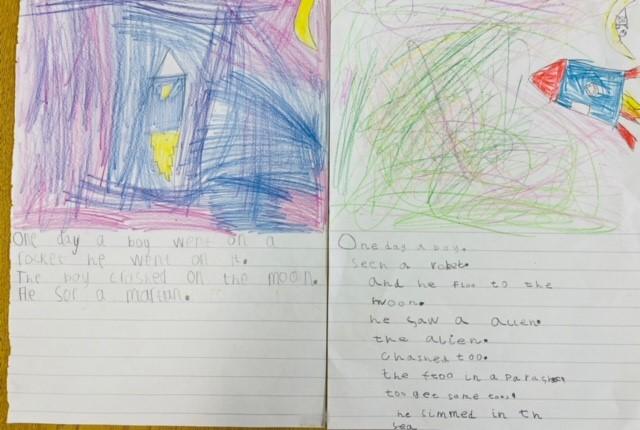 One day a boy went on a
rocket he went on it.
The boy clashed on the moon.
He sor a martun.
One day a boy.
seen a robot.
and he floo to the
moon.
he saw a alien.
the alien.
chashed too.
the ftoo in a
too get some
he simmed in th
sea